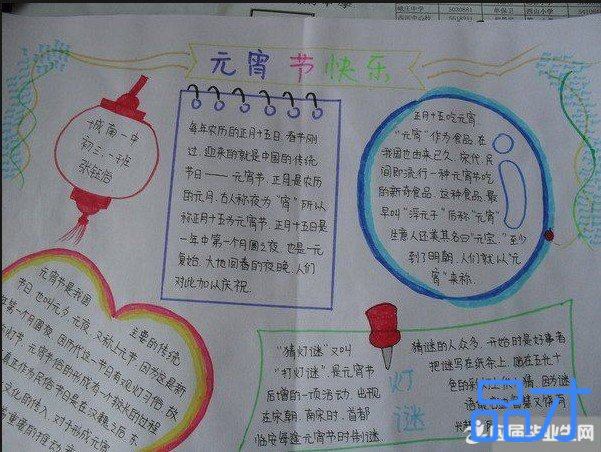 元宵节快乐
城南一中
初三.一班
每年农历的正月十五日,春节刚
过,迎来的就是中国的传统
节日——元宵节。正月是农历
的元月,古人称夜为“宵”所以
称正月十五为元宵节。正月十五日是
一年中第一个月圆之夜,也是一元
复始,大地回春的夜晚,人们
对此加以庆祝.
正月十五吃元宵
“元宵”作为食品,在
我国也由来已久。宋代,民
间即流行一种元宵节吃
的新奇食品。这种食品,最
早叫“浮元子”后称“元宵”
生意人还美其名曰“元宝。”至少
到了明朝,人们就以“元
宵”来称.
元宵节是我国
主要的传统
节日,也叫元
元夜,又称上元节,因
第一个月圆
因历代这一节日有观灯习俗,故
灯节。元宵节俗的形成有一个较长的过程
真正作为民俗节日是在汉魏之后。东
文化的传入,对于形成元宵
有着重要的推动
灯谜
“猜灯谜”又叫
“打灯谜”是元宵节
后增的一项活动,出现
在宋朝。南宋时,首都
临安每逢元宵节时制谜,
猜谜的人众多。开始时是好事者
把谜写在纸条上,贴在五光十
色的彩灯上供人猜。因为谜